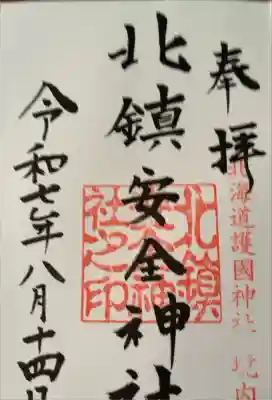 奉拝
北海道護國神社 境内
北鎮安全神社
北鎮安全神社之印
令和七年八月十四日